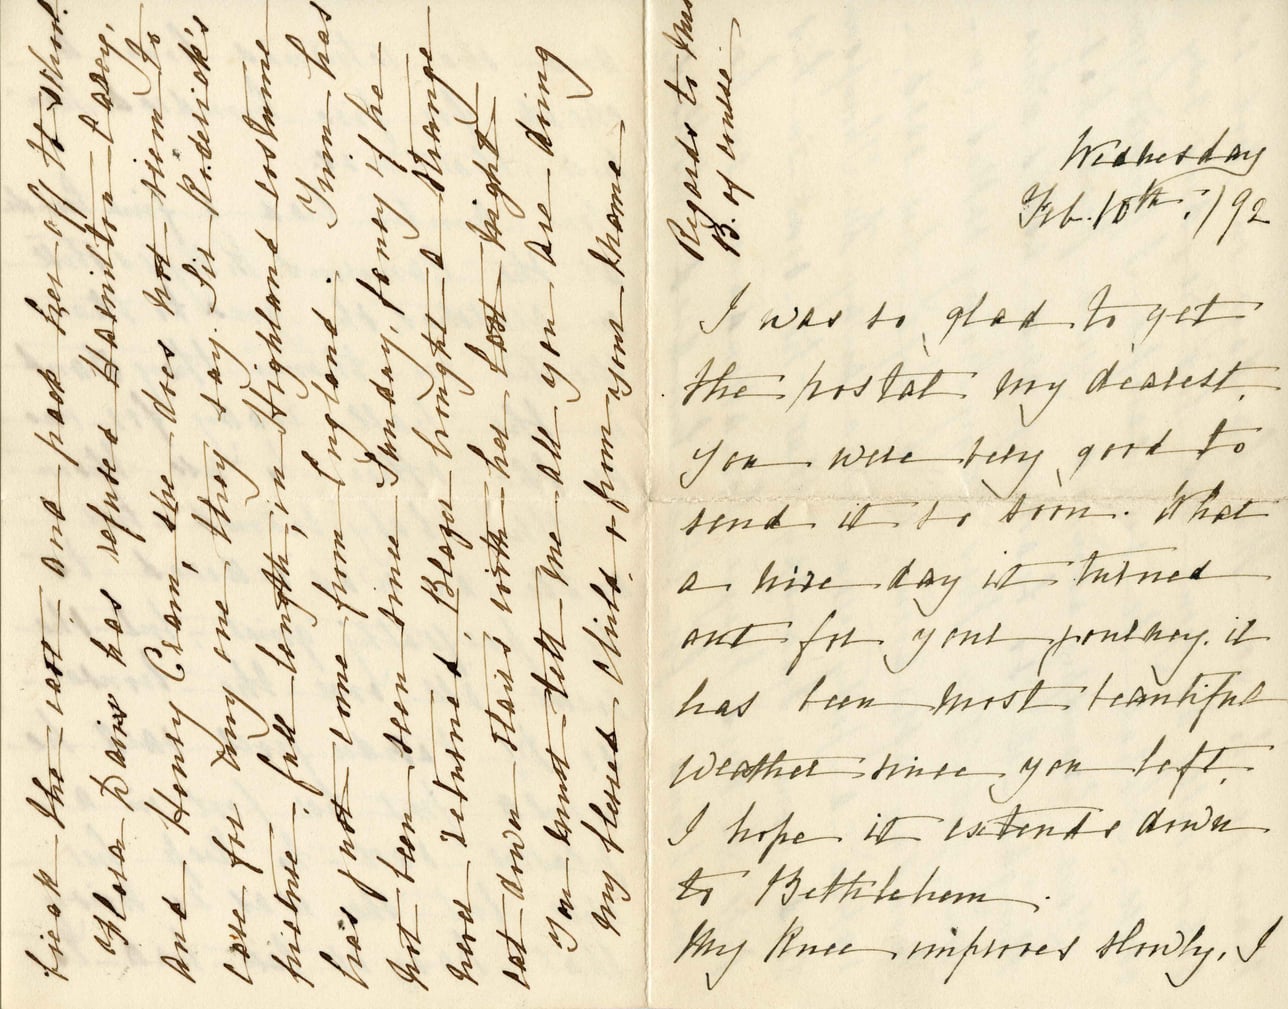 Wednesday
Feb. 10th. /92
I was so glad to get
the postal my dearest.
You were very good to
send it so soon. What
a nice day it turned
out for your journey. it
has been most beautiful
weather since you left.
I hope it extends down
to Bethlehem.
My knee improves slowly. I
break the cast and pack her off to
Flora has refused Hamilton
and Henry Cram, she does not seem to
care for any one they say. Sir Roderick's
picture, full length, in Highland costume
has just come from England. has
not been seen since Sunday, fancy if he
never returned. bought a strange
cat down stairs with her last night
You must tell me all you are doing
my blessed child, & from your
Regards to Mrs
B. of course